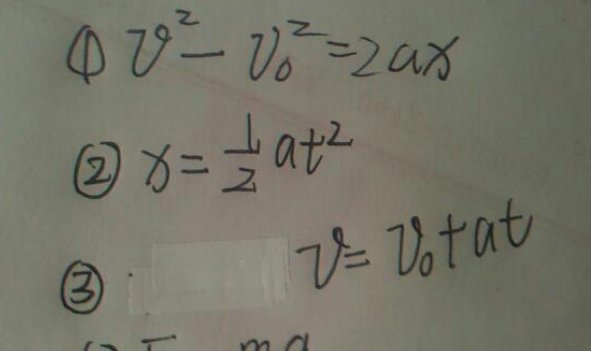 ① v² - v₀² = 2ax
② x = 1/2 at²
③ v = v₀ + at